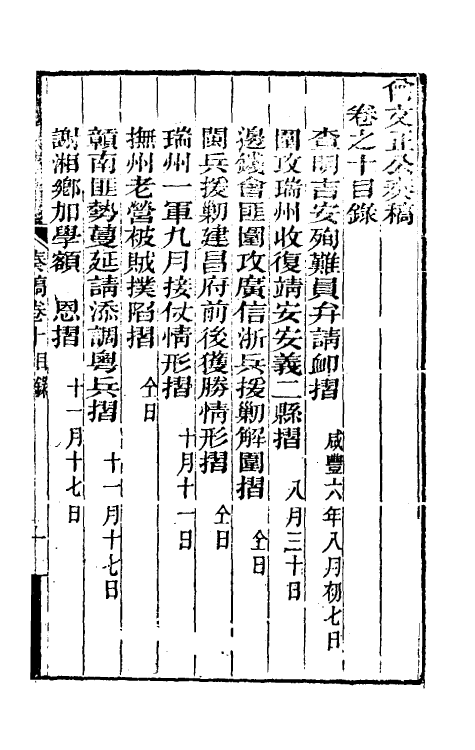 曾文正公奏稿
卷之十目錄
查明吉安殉難員弁請卹摺 咸豐六年八月初七日
圍攻瑞州收復靖安安義二縣摺 八月三十日
邊錢會匪圍攻廣信浙兵援勦解圍摺 仝日
閩兵援勦建昌府前後獲勝情形摺 仝日
瑞州一軍九月接仗情形摺 十月十一日
撫州老營被賊撲陷摺 仝日
贛南匪勢蔓延請添調粵兵摺 十一月十七日
謝湘鄉加學額 恩摺 十一月十七日
奏稿卷十目錄 一